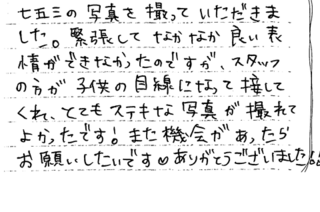 七五三の写真を撮っていただきま
した。緊張してなかなか良い表
情ができなかったのですが、スタッフ
の方が子供の目線になって接して
くれ、とてもステキな写真が撮れて
よかったです!また機会があったら
お願いしたいです♡ありがとうございました!!